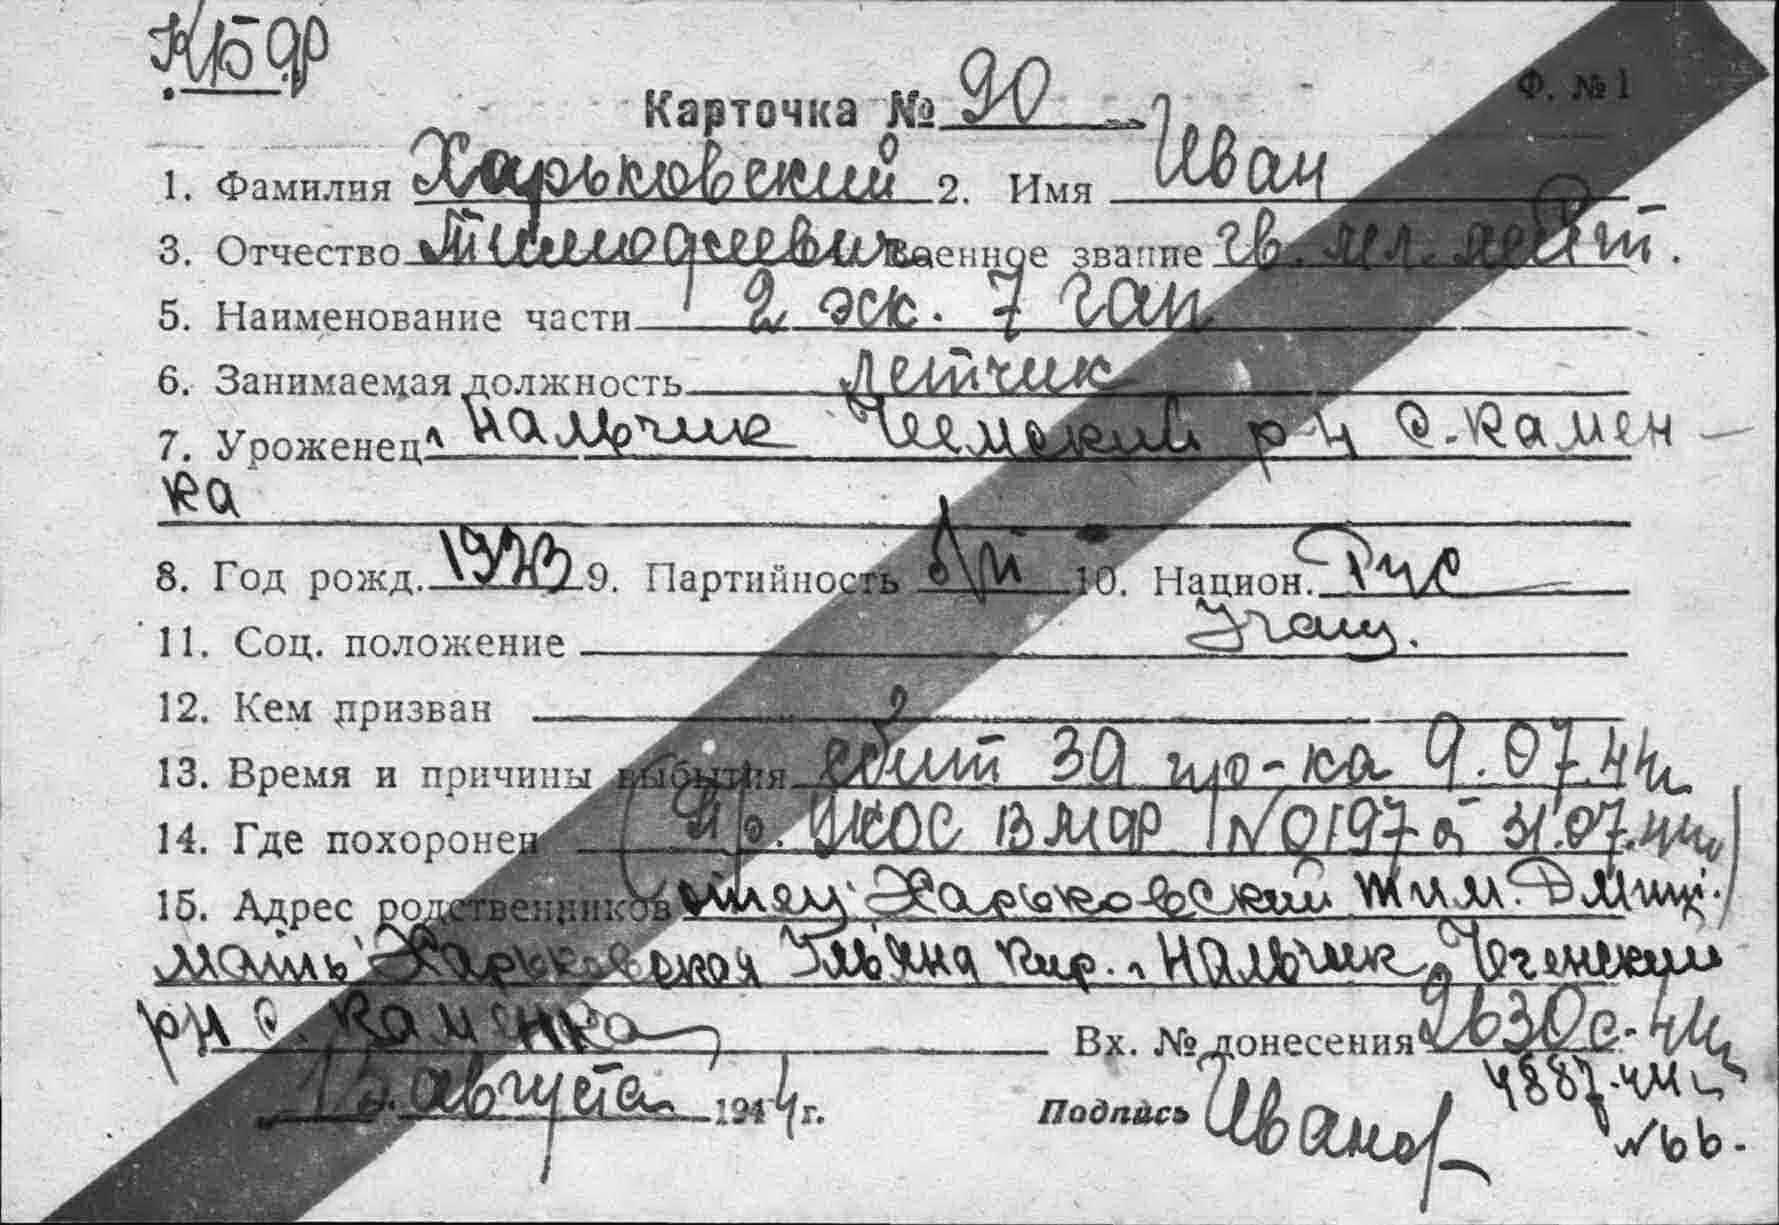 КБФ
Карточка № 90
Ф. №1
1. Фамилия Харьковский 2. Имя Иван
3. Отчество Тимофеевич Военное звание гв. мл. лейт.
5. Наименование части 2 эск. 7 гап
6. Занимаемая должность летчик
7. Уроженец г. Нальчик Чегемский р-н с. Камен-
ка
8. Год рожд. 1923 9. Партийность б/п 10. Национ. Рус
11. Соц. положение Учащ.
12. Кем призван
13. Время и причины выбытия сбит ЗА пр-ка 9.07.44г
14. Где похоронен (Пр. УКОС ВМФ №0197 от 31.07.44г)
15. Адрес родственников отец Харьковский Тим. Дмит.
мать Харьковская Ульяна Кир. г. Нальчик, Чегенский
рн с. Каменка
Вх. № донесения 2630с-44г
4887-44г
№66.
15 августа 1944 г.
Подпись Иванов